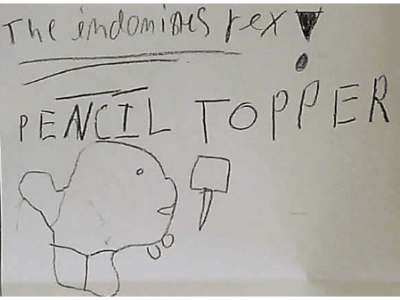 The indomines rex!
PENCIL TOPPER